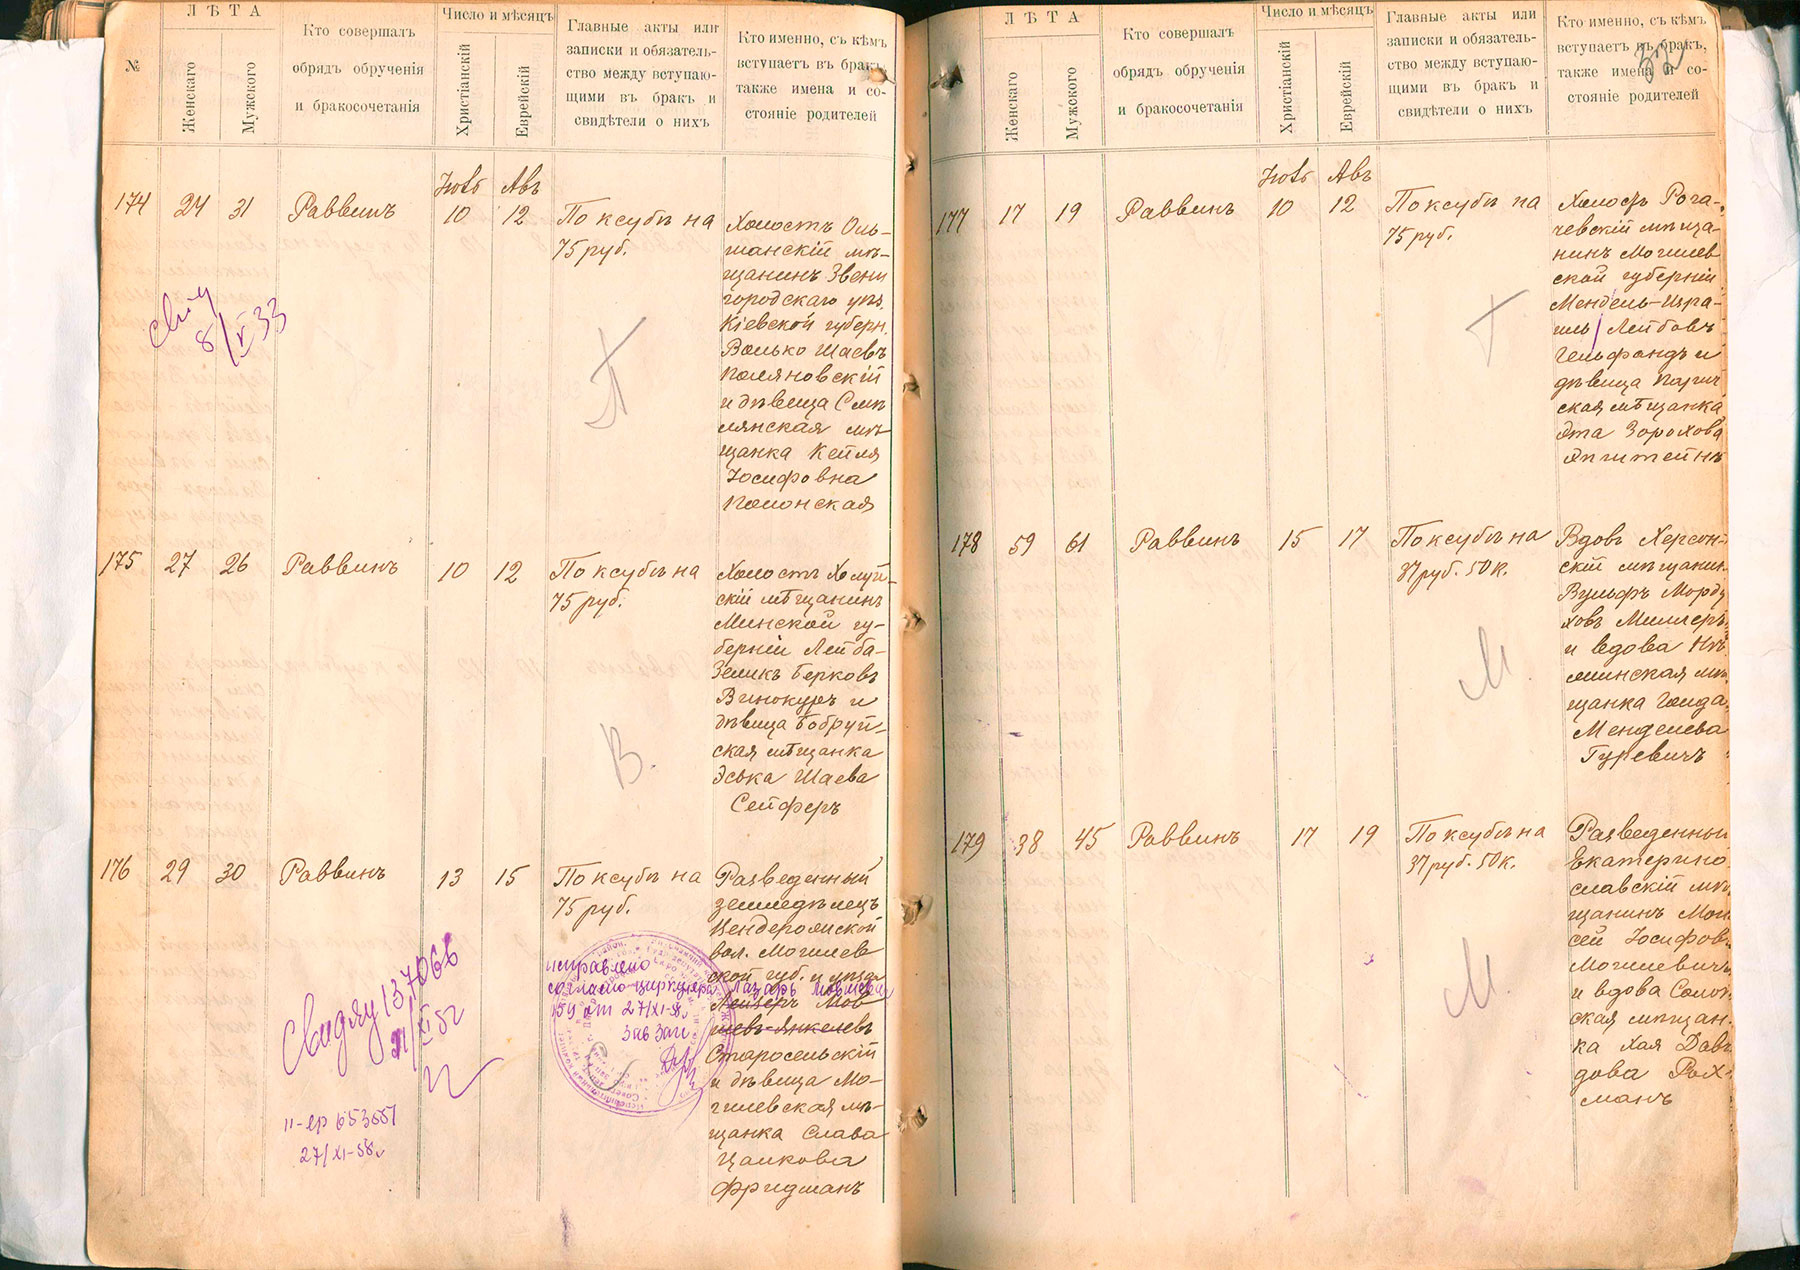 №
ЛѢТА
Женскаго
Мужского
Кто совершалъ
обрядъ обрученія
и бракосочетанія
Число и мѣсяцъ
Христіанскій
Еврейскій
Главные акты или
записки и обязатель-
ство между вступаю-
щими въ бракъ и
свидѣтели о нихъ
Кто именно, съ кѣмъ
вступаетъ въ бракъ,
также имена и со-
стояніе родителей
Авъ
174 24 31 Раввинъ 10 12 По ксубѣ на
75 руб.
Холостъ Оль-
шанскій мѣ-
щанинъ Звени
городскаго уѣз.
Кіевской губерн.
Волько Шаевъ
Поляновскій
и дѣвица Смѣ
лянская мѣ
щанка Кейля
Іосифовна
Полонская
8/V 33
175 27 26 Раввинъ 10 12 По ксубѣ на
75 руб.
Холостъ Холуй-
скій мѣщанинъ
Минской гу-
берніи Лейба-
Зеликъ Берковъ
Винокуръ и
дѣвица Бобруй-
ская мѣщанка
Эська Шаева
Сейферъ
В.
176 29 30 Раввинъ 13 15 По ксубѣ на
75 руб.
Разведенный
земледѣлецъ
вол. Могилев
ской губ. и уѣзда
Лейзеръ Мов
шевъ-Янкелевъ
Старосельскій
и дѣвица Мо-
гилевская мѣ-
щанка Слава
Цалкова
Фридманъ
исправлено
согласно циркуляра Лазарь Мовшевъ
159 от 27/XI-58.
Зав Загс
137066
21/XI 52
27/XI-58.
ЛѢТА
Женскаго
Мужского
Кто совершалъ
обрядъ обрученія
и бракосочетанія
Число и мѣсяцъ
Христіанскій
Еврейскій
Главные акты или
записки и обязатель-
ство между вступаю-
щими въ бракъ и
свидѣтели о нихъ
Кто именно, съ кѣмъ
вступаетъ въ бракъ,
также имена и со-
стояніе родителей
32
Авъ
177 17 19 Раввинъ 10 12 По ксубѣ на
75 руб.
Холостъ Рога-
чевскій мѣща-
нинъ Могилев
ской губерніи
Мендель-Изра-
иль Лейбовъ
Гельфандъ и
дѣвица Парич
ская мѣщанка
Эта Зорохова
Эпштейнъ
178 59 61 Раввинъ 15 17 По ксубѣ на
37 руб. 50 к.
Вдовъ Херсон-
скій мѣщанин
Вульфъ Морду
ховъ Миллеръ
и вдова Нѣ
жинская мѣ
щанка Голда
Менделева
Гуревичъ
М.
179 38 45 Раввинъ 17 19 По ксубѣ на
37 руб. 50 к.
Разведенный
Екатерино
славскій мѣ
щанинъ Мои
сей Іосифовъ
Могилевичъ
и вдова
ская мѣщан-
ка Хая Давы
дова Рах-
манъ
М.